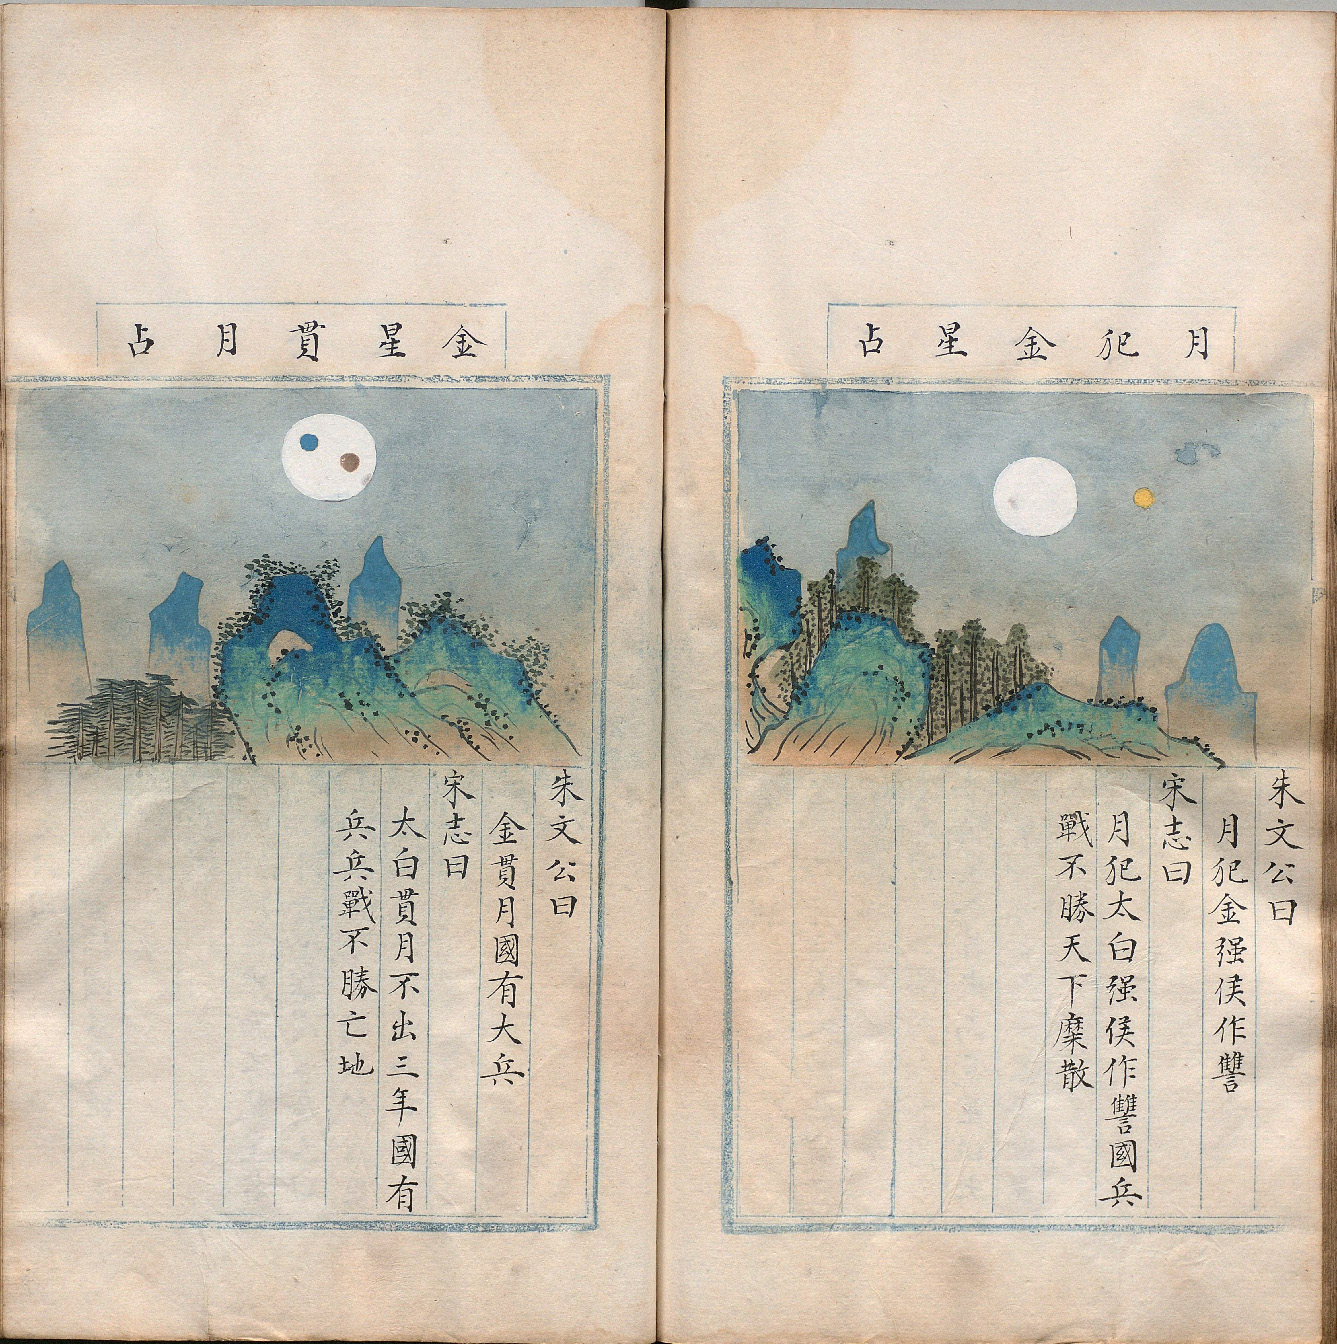 月犯金星占
朱文公曰
月犯金强侯作讐
宋志曰
月犯太白强侯作讐國兵
戰不勝天下糜散
金星貫月占
朱文公曰
金貫月國有大兵
宋志曰
太白貫月不出三年國有
兵兵戰不勝亡地